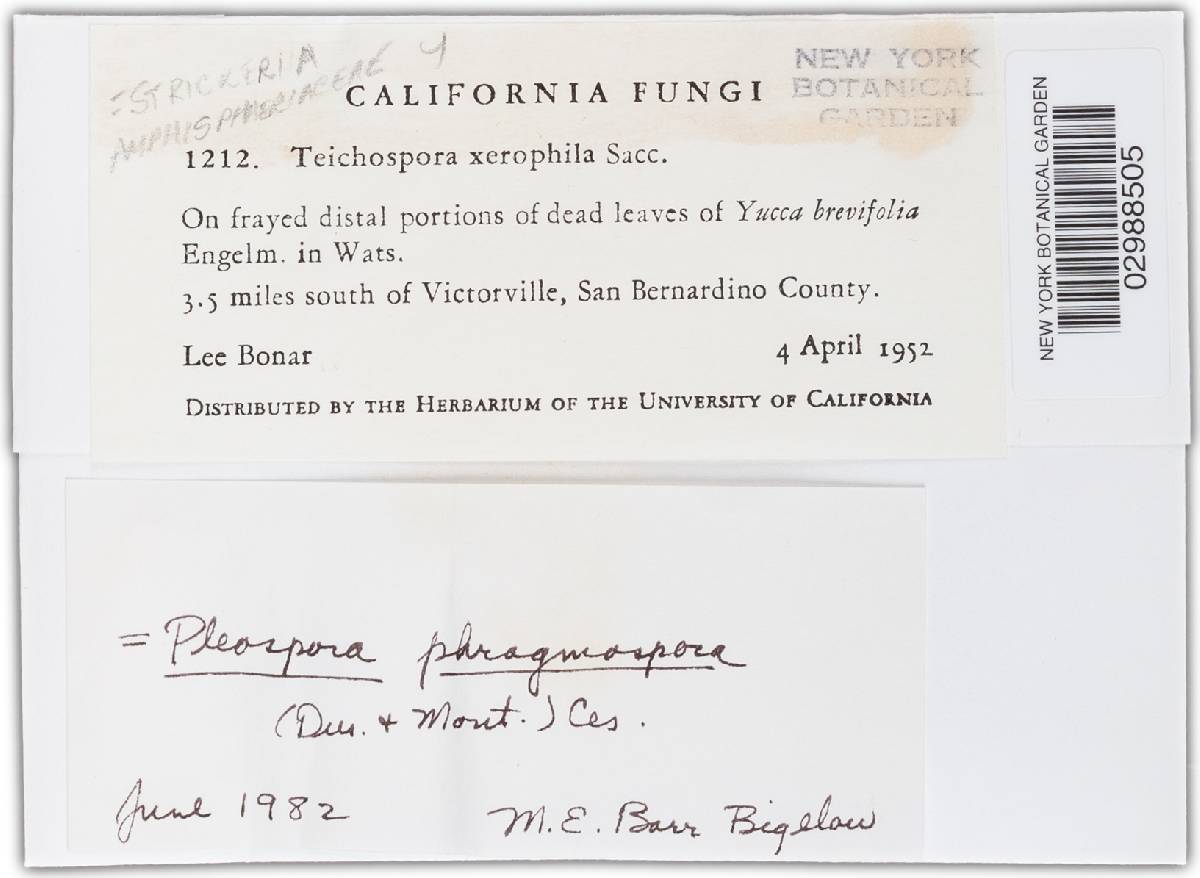 =STRICKERIA 4
AMPHISPHAERIACEAE
NEW YORK
BOTANICAL
GARDEN
CALIFORNIA FUNGI
1212. Teichospora xerophila Sacc.
On frayed distal portions of dead leaves of Yucca brevifolia
Engelm. in Wats.
3.5 miles south of Victorville, San Bernardino County.
Lee Bonar 4 April 1952
DISTRIBUTED BY THE HERBARIUM OF THE UNIVERSITY OF CALIFORNIA
NEW YORK BOTANICAL GARDEN
02988505
= Pleospora phragmospora
(Dur. + Mont.) Ces.
June 1982 M.E. Barr Bigelow